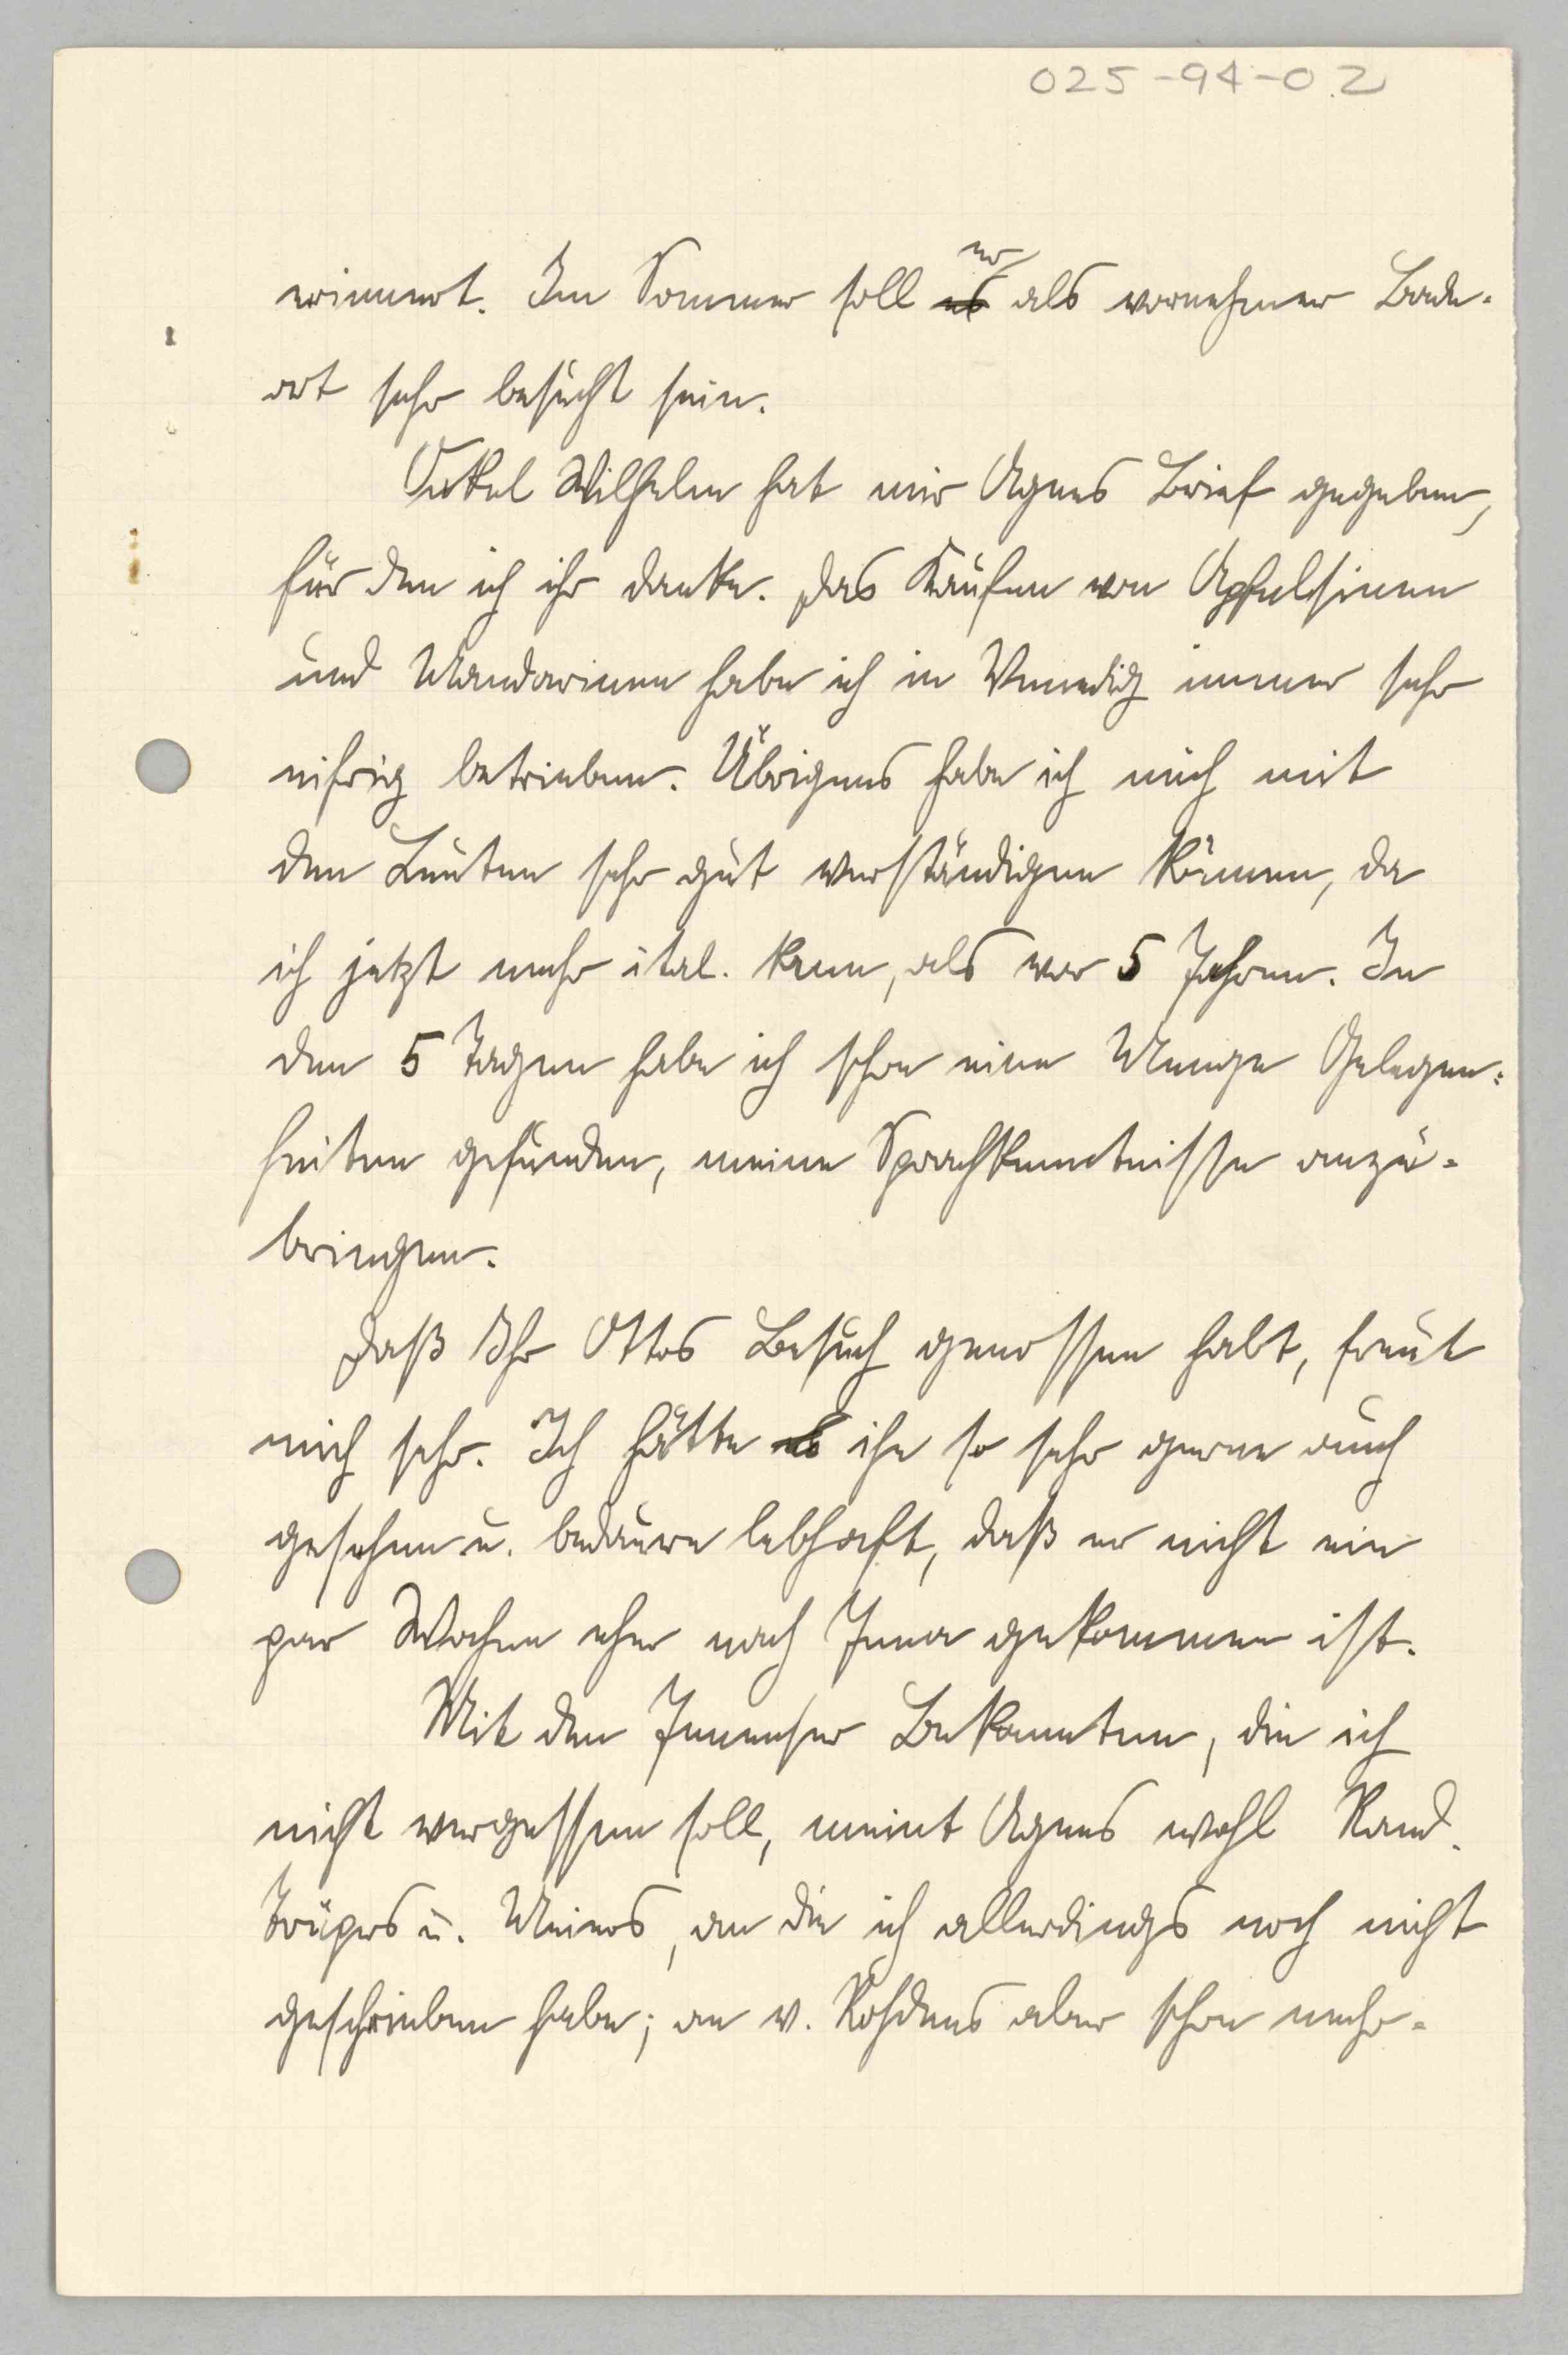 025-94-02
erinnert. Im Sommer soll es er als vornehmer Bade-
ort sehr besucht sein.
Onkel Wilhelm hat mir Agnes Brief gegeben,
für den ich ihr danke. Das Kaufen von Apfelsinen
und Mandarinen habe ich in Venedig immer sehr
eifrig betrieben. Übrigens habe ich mich mit
den Leuten sehr gut verständigen können, da
ich jetzt mehr ital. kann, als vor 5 Jahren. In
den 5 Tagen habe ich schon eine Menge Gelegen-
heiten gefunden, meine Sprachkenntnisse anzu-
bringen.
Daß Ihr Ottos Besuch genossen habt, freut
mich sehr. Ich hätte es ihn so sehr gerne auch
gesehen u. bedaure lebhaft, daß er nicht ein
par Wochen eher nach Jena gekommen ist.
Mit den Jenenser Bekannten, die ich
nicht vergessen soll, meint Agnes wohl Kand.
Trüpers u. Meiers, an die ich allerdings noch nicht
geschrieben habe; an v. Rohdens aber schon mehr-